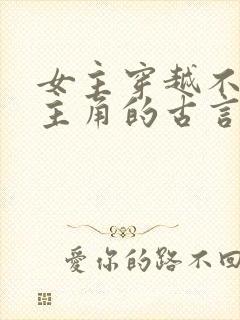 女主穿越不
主角的古言
愛你的路不回